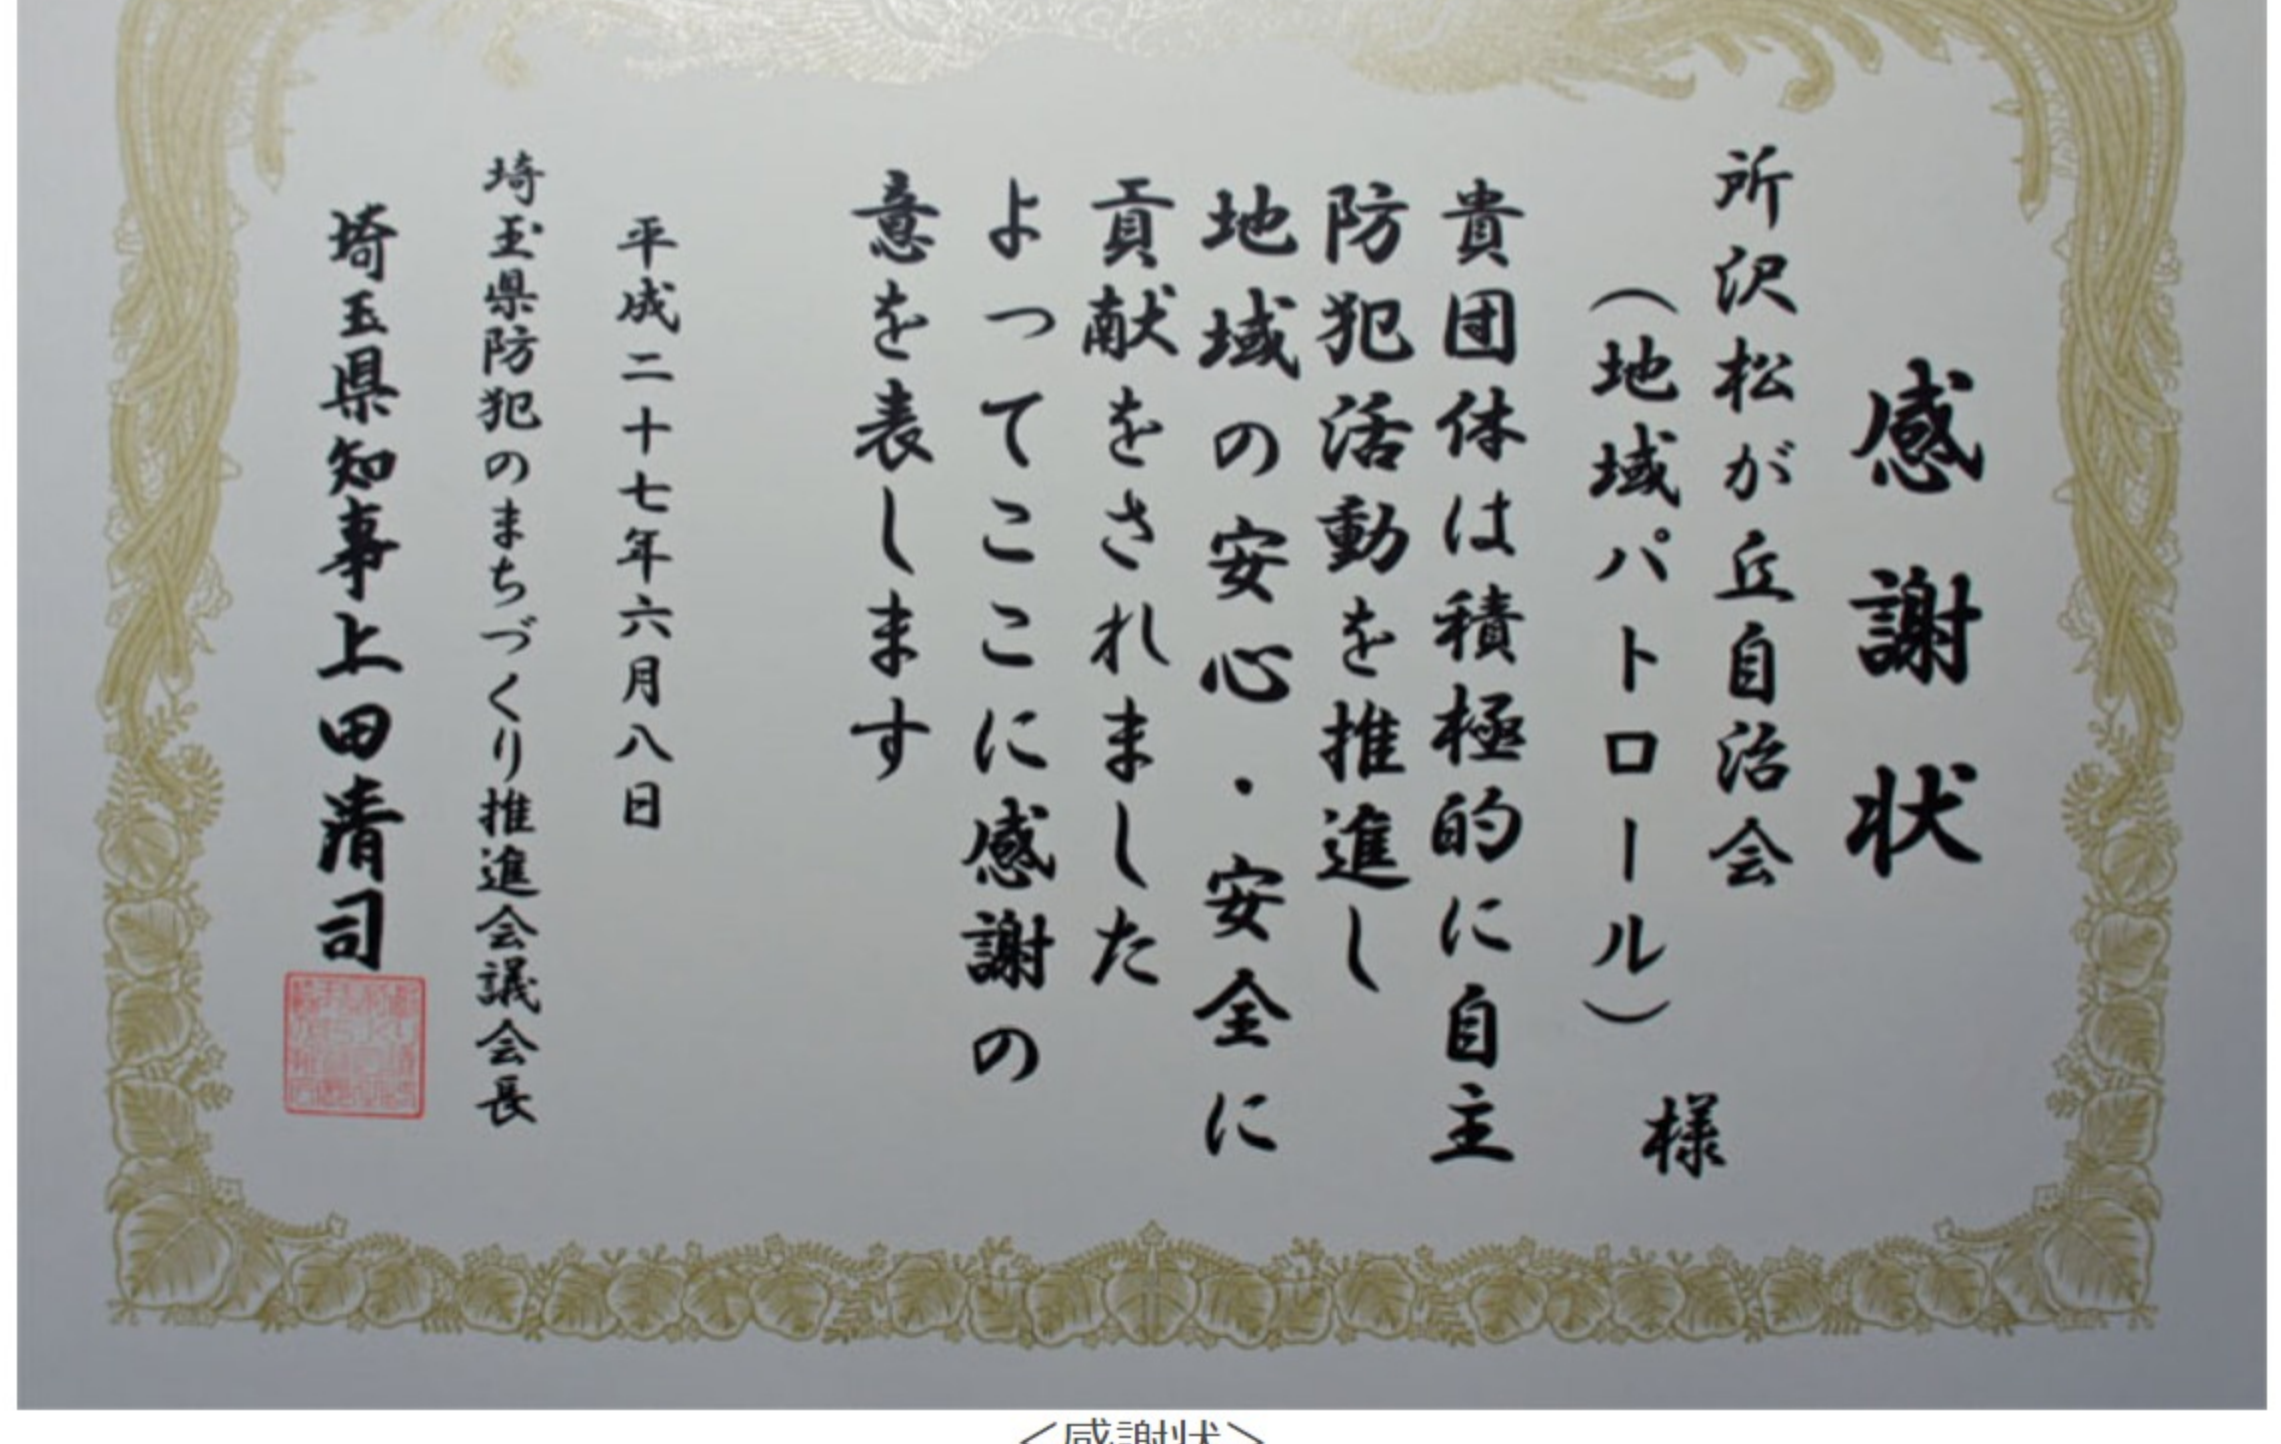 感謝状
所沢松が丘自治会
（地域パトロール）
様
貴団体は積極的に自主
防犯活動を推進し
地域の安心・安全に
貢献をされました
よってここに感謝の
意を表します
平成二十七年六月八日
埼玉県防犯のまちづくり推進会議会長
埼玉県知事上田清司
＜感謝状＞